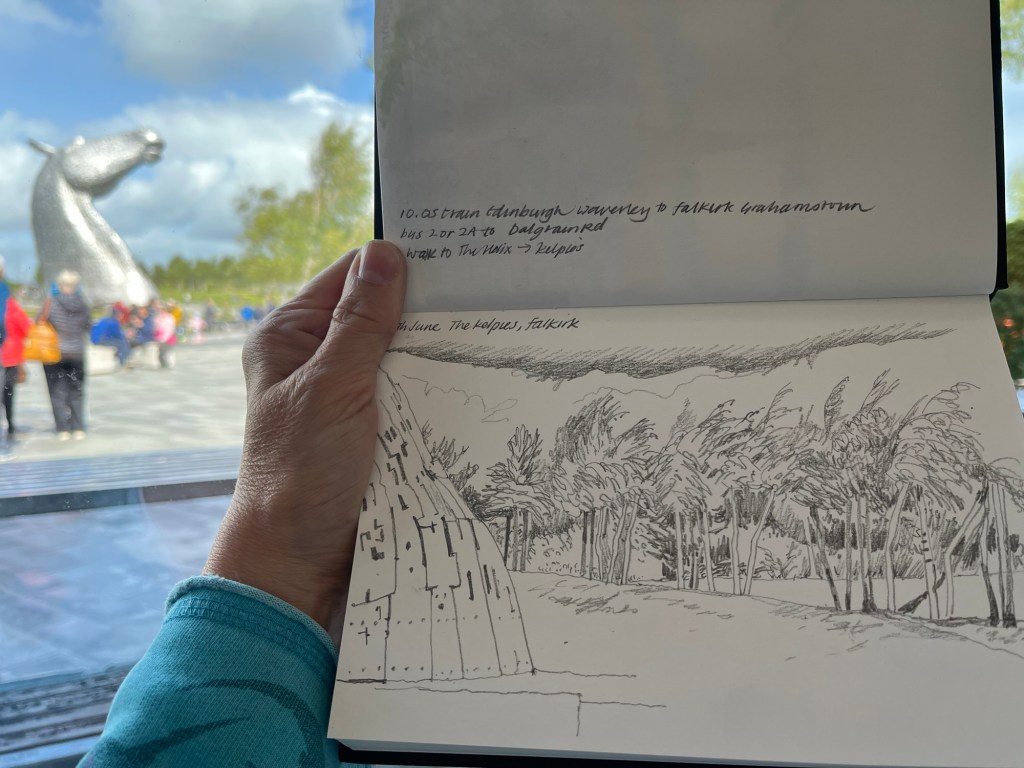 10.05 train Edinburgh Waverley to Falkirk Grahamstown
bus 2 or 2A to Dalgrain Rd
walk to The Helix → Kelpies
th June The Kelpies, Falkirk